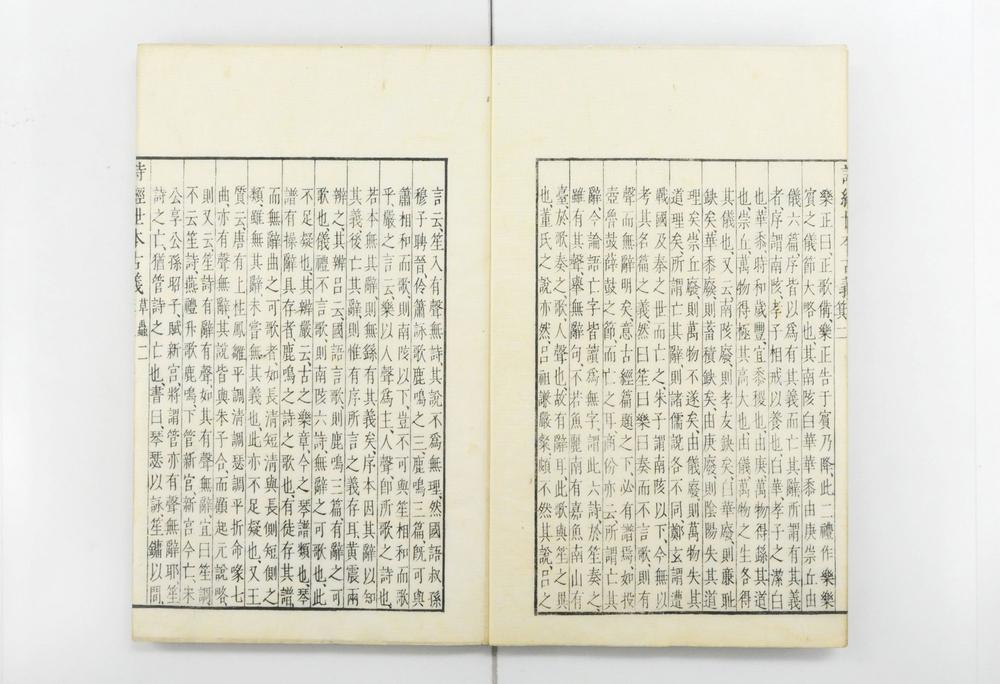 詩經世本古義集二
樂正曰、正歌備、樂正告于賓、乃降、此二禮作樂樂
賓之儀節大略也、其南陔白華華黍由庚崇丘由
儀六篇、序皆以爲有其義而亡其辭、所謂有其義
者、序謂南陔、孝子相戒以養也、白華、孝子之潔白
也、華黍、時和歲豐、宜黍稷也、由庚、萬物得繇其道
也、崇丘、萬物得極其高大也、由儀、萬物之生各得
其儀也、又云、南陔廢、則孝友缺矣、白華廢、則廉耻
缺矣、華黍廢、則蓄積缺矣、由庚廢、則陰陽失其道
理矣、崇丘廢、則萬物不遂矣、由儀廢、則萬物失其
道理矣、所謂亡其辭、則諸儒說各不同、鄭玄謂遭
戰國及秦之世而亡之、朱子謂南陔以下、今無以
考其名篇之義、然曰笙、曰樂、曰奏、而不言歌、則有
聲而無辭明矣、意古經篇題之下、必有譜焉、如投
壺魯鼓薛鼓之節、而亡之耳、商份亦云、所謂亡其
辭、今論語亡字皆讀爲無字、謂此六詩於笙奏之、
雖有其聲、舉無辭句、不若魚麗南有嘉魚南山有
臺於歌奏之、歌人聲也、故有辭耳、此歌與笙之異
也、董氏之說亦然、呂祖謙嚴粲頗不然其說、呂之
言云、笙入有聲無詩、其說不爲無理、然國語叔孫
穆子聘晉、伶簫詠歌鹿鳴之三、鹿鳴三篇旣可與
簫相和而歌、則南陔以下、豈不可與笙相和而歌
乎、嚴之言云、樂以人聲爲主、人聲卽所歌之詩也、
若本無其辭、則無繇有其義矣、序本因其辭以知
其義、後亡其辭、則惟有序所言之義存耳、黃震兩
辨之、其辨呂云、國語言歌、則鹿鳴三篇有辭之可
歌也、儀禮不言歌、則南陔六詩、無辭之可歌也、此
不足疑也、其辨嚴云、古之樂章、今之琴譜類也、琴
譜有操、辭具存者、鹿鳴之詩之歌也、有徒存其譜、
而無辭曲之可歌者、如長清短清與長側短側之
類、雖無其辭、未嘗無其義也、此亦不足疑也、又王
質云、唐有上柱鳳雛平調清調瑟調平折命喙七
曲亦有聲無辭、其說皆與朱子合、而顧起元說略、
則又云、笙詩有辭有聲、如其有聲無辭、宜曰笙調
不云笙詩、燕禮升歌鹿鳴、下管新宮、新宮今亡、宋
公享公孫昭子、賦新宮、將謂管亦有聲無辭耶、笙
詩之亡、猶管詩之亡也、書曰、琴瑟以詠、笙鏞以間、
詩經世本古義 草蟲 二